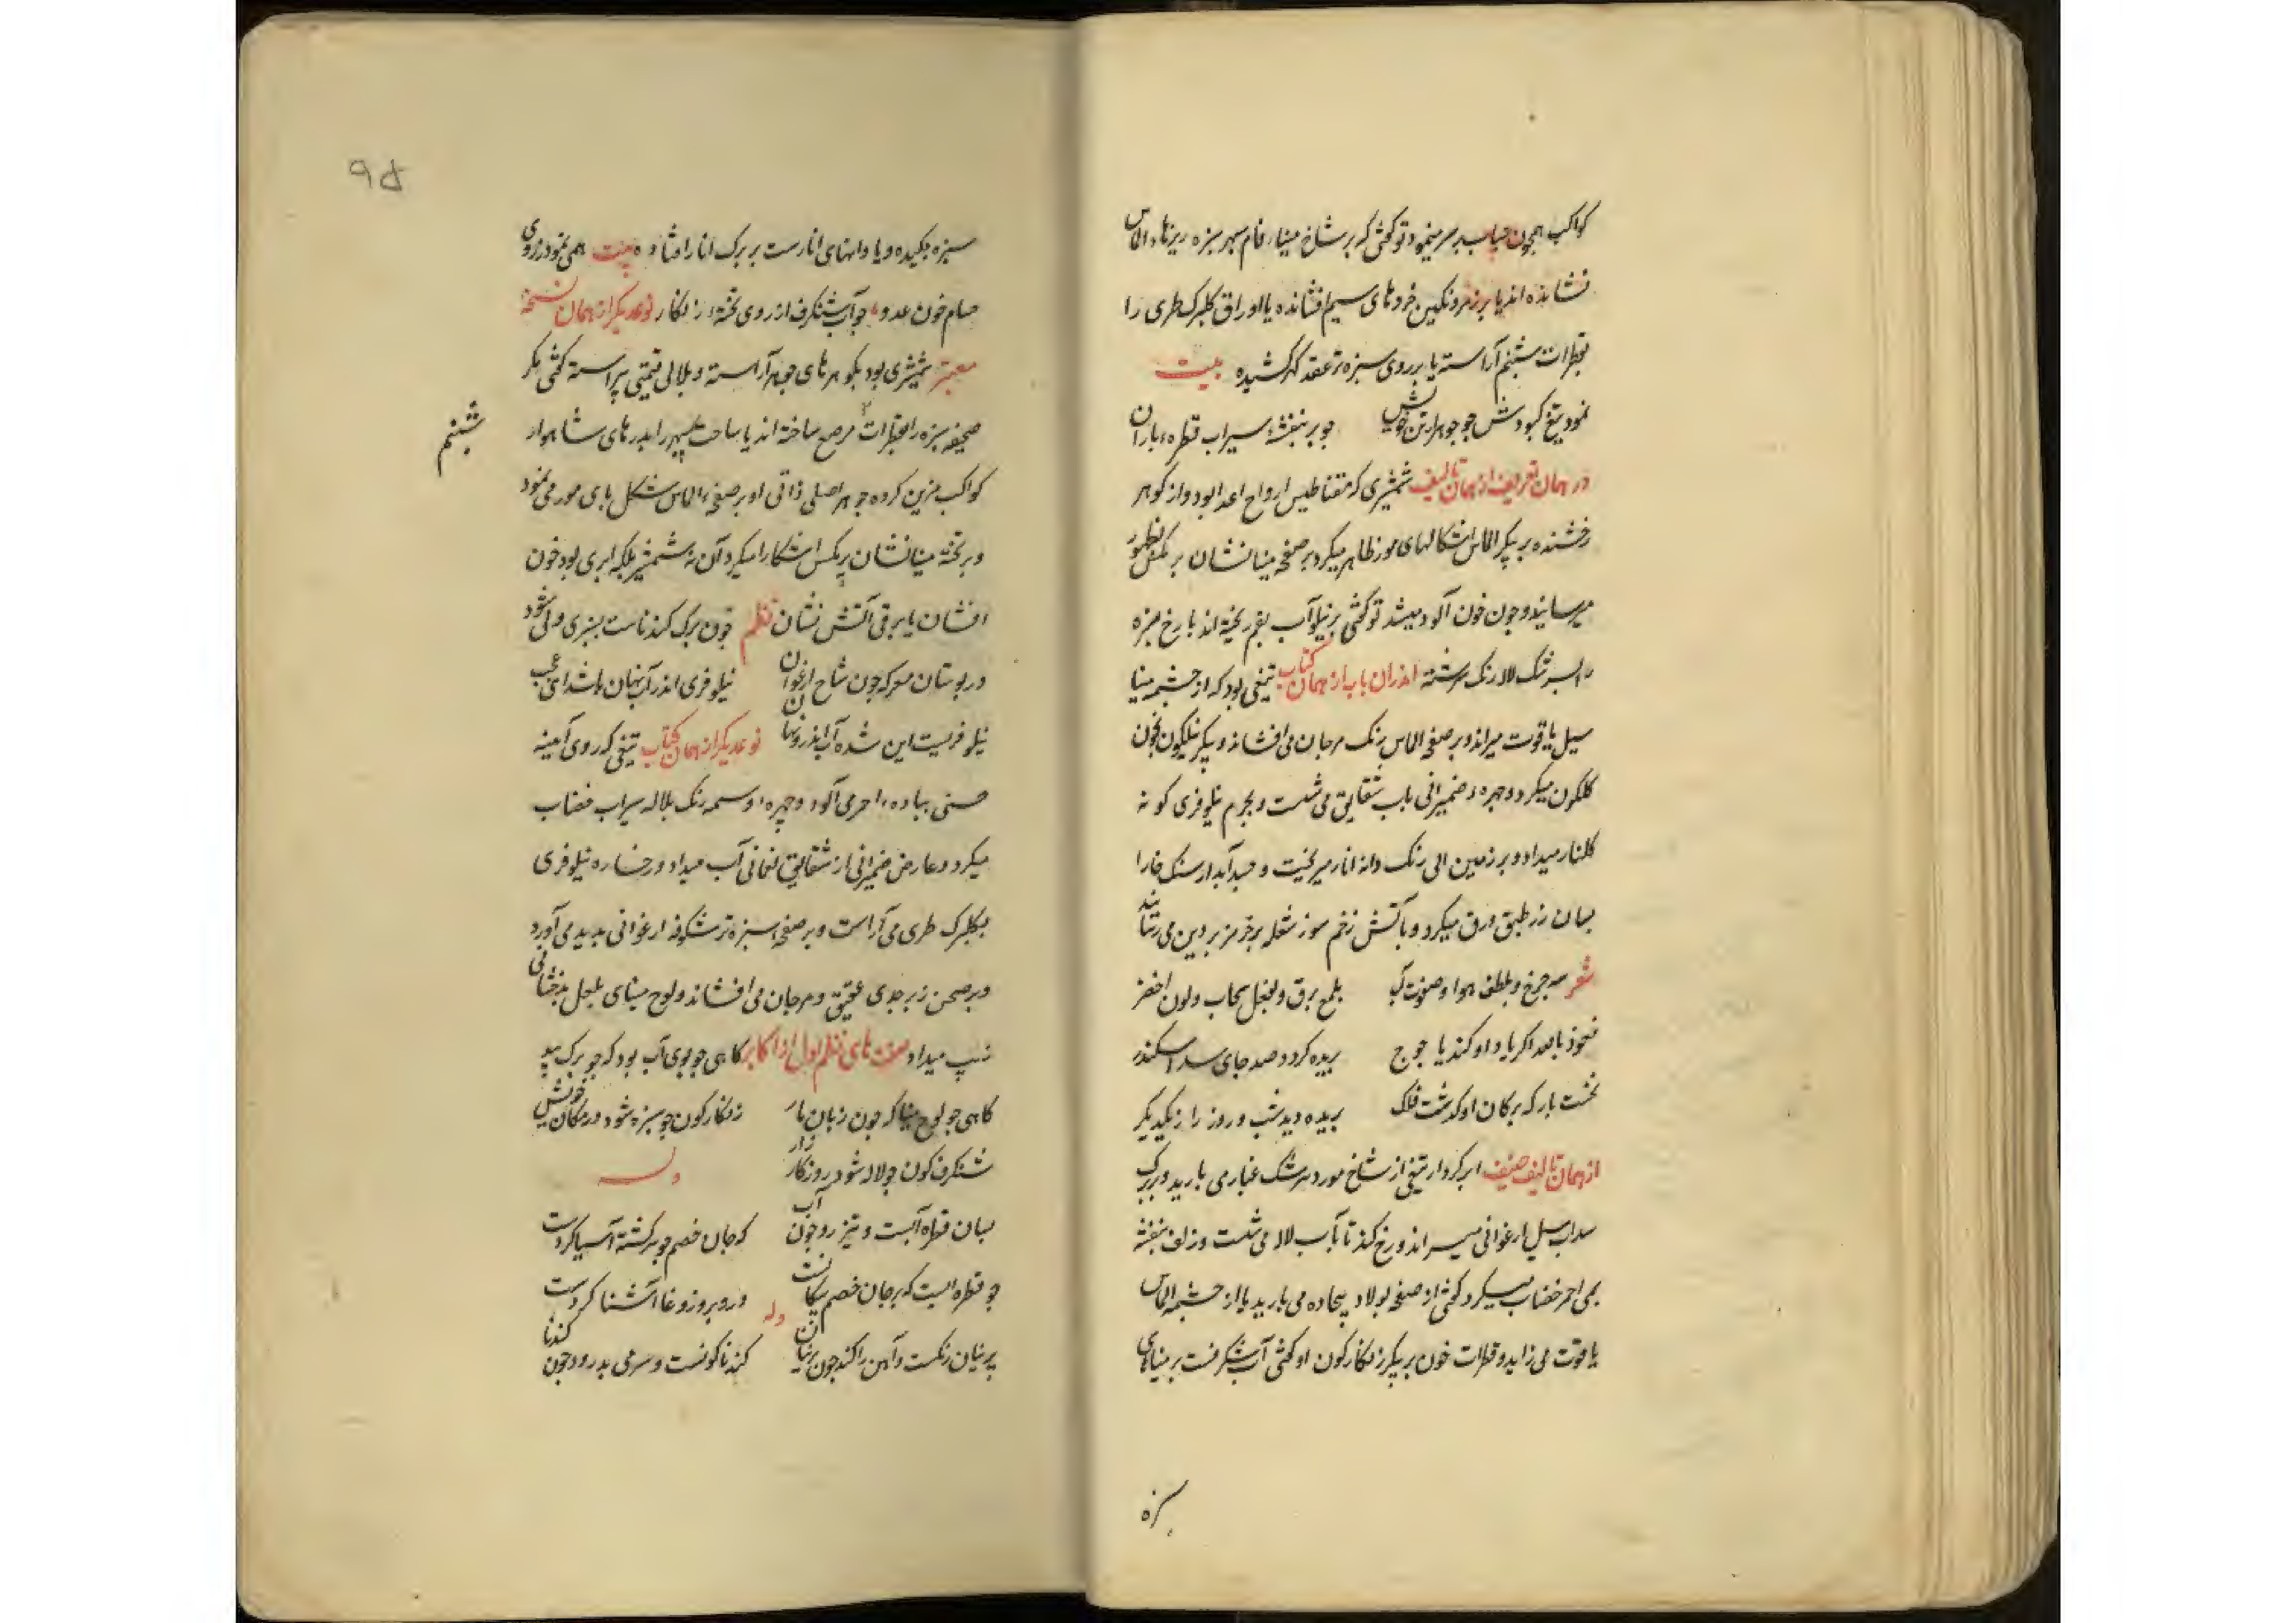 کواکب همچون حباب بر سر مینمود تو کفتی که بر شاخ مینا فام سپهر سبزه ریزهاء الماس
نشانده اند یا بر زمرد نکین خردهای سیم افشانده یا اوراق کلبرک طری را
بقطرات شبنم آراسته یا بر روی سبزه تر عقد کهر کشیده بیت
نمود تیغ کبودش جو جوهر از تن خویش جو بر بنفشهٔ سیراب قطرهٔ باران
در همان تعریف از همان تالیف شمشیری که مقناطیس ارواح اعدا بود و از کوهر
رخشنده بر پیکر الماس اشکالهای مور ظاهر میکرد بر صفحه مینا نشان پر مکس بظهور
میرسانید و جون خون آلود میشد تو کفتی بر نیل آب بقم ریخته اند یا رخ سبزه
را بسرشک لاله رنک سرشته اندران باب از همان کتاب تیغی بود که از جشمه مینا
سیل یاقوت میراند و بر صفحه الماس رنک مرجان می افشاند و پیکر نیلکون بخون
کلکون میکرد و جهره ضمیرانی باب شقایق می شست و بجرم نیلوفری کونه
کلنار میداد و بر زمین الی رنک دانه انار میریخت و آبدار سنک خارا
بسان زر طبق ورق میکرد و بآتش زخم سوز شعله بر خرمن پروین می رسانید
شعر سه جرخ و بلطف هوا و صفوت آب بلمع برق و بفعل سحاب و لون اخضر
نعوذ بالله اکر یاد او کند یاجوج بریده کردد صد جای سد اسکندر
نخست بار که بر کان او کذشت فلک بریده دید شب و روز را ز یکدیکر
از همان تالیف صنیف ابر کردار تیغی از شاخ مورد سرشک غبار می بارید و بر برک
سداب سیل ارغوانی میراند و رخ کندنا بآب لاله می شست و زلف بنفشه
بمی احمر خضاب میکرد کفتی از صفحه پولاد بیجاده می بارید یا از جشمه الماس
یاقوت می زاید و قطرات خون بر پیکر زنکار کون او کفتی آب شنکرفست بر مینای
سبزه
۹۵
سبزه جکیده و یا دانهای انارست بر برک انار افتاده بیت همی نمود ز روی
حسام خون عدو جو آب شنکرف از روی تختهٔ زنکار نوعدیکر از همان نسخهٔ
معتبر شمشیری بود بکوهرهای جوهر آراسته و بلالی قیمتی پیراسته کفتی مکر
صحیفه سبزه را بقطرات مرصع ساخته اند یا ساحت سپهر را بدرهای شاهوار
شبنم
کواکب مزین کرده جوهر اصلی ذاتی او بر صفحهٔ الماس شکل پای مور می نمود
و بر تخته مینا نشان پر مکس اشکارا میکرد آن نه شمشیر بلکه ابری بود خون
افشان یا برقی آتش نشان نظم جون برک کندناست بسبزی ولی شود
در بوستان معرکه جون شاخ ارغوان نیلوفری اندر آب نهان باشد ای عجب
نیلوفریست این شده آب اندرو نهان نوعدیکر از همان کتاب تیغی که روی آینه
حسنی بباده احمر می آلود و جهره و سمه رنک بلاله سیراب خضاب
میکرد و عارض ضمیرانی از شقایق نعمانی آب میداد و رخساره نیلوفری
بکلبرک طری می آراست و بر صفحه سبزه تر شکوفه ارغوانی پدید می آورد
و بر صحن زبرجدی عقیق و مرجان می افشاند و لوح مینای بلعل بدخشانی
زیب میداد صفت های نظم اول از اکابر کاهی جو جوی آب بود که جو برک بید
کاهی جو لوح مینا که جون زبان مار زنکار کون جو سبزه شود در مکان خویش
شنکرف کون جو لاله شود روز کارزار وله
بسان قطره آبست و تیز رو جون آب که جان خصم جو سرکشته آسیا کردست
جو قطره ایست که بر جان خصم پیکانست و رو بروز وغا آشنا کردست
وله
پرنیان رنکست و آهن را کند جون پرنیان کندنا کونست و سر می بدرود جون کندنا